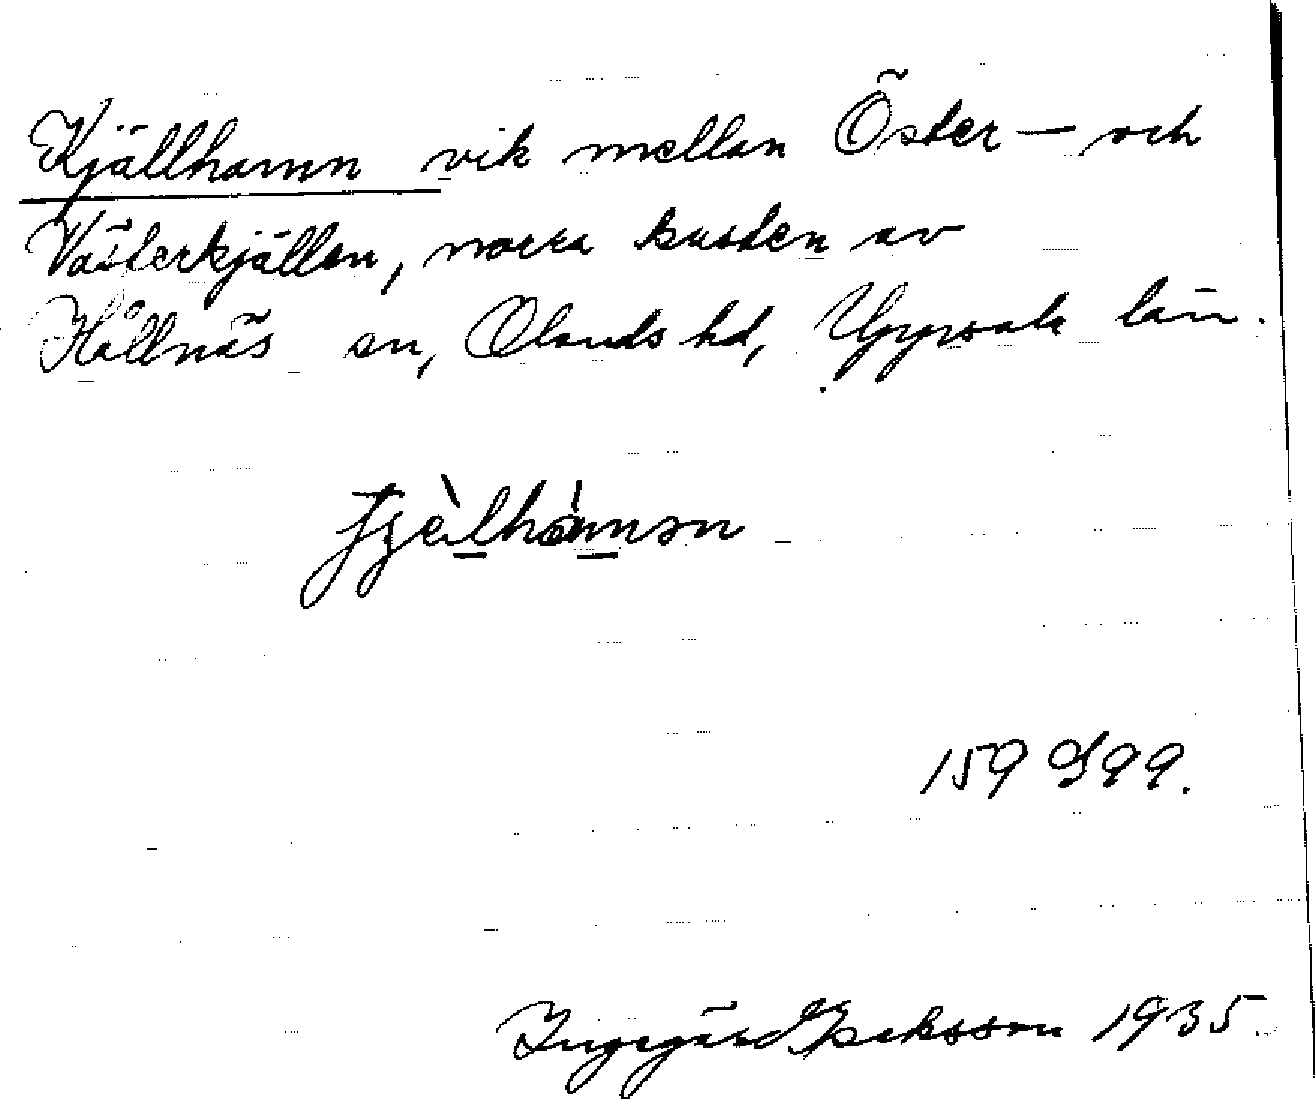 Kjällhamn vik mellan Öster- och
Västerkjällen, norra kusten av
Hållnäs sn, Olands hd, Uppsala län.
159 S 99.
Ingegärd Isaksson 1935.